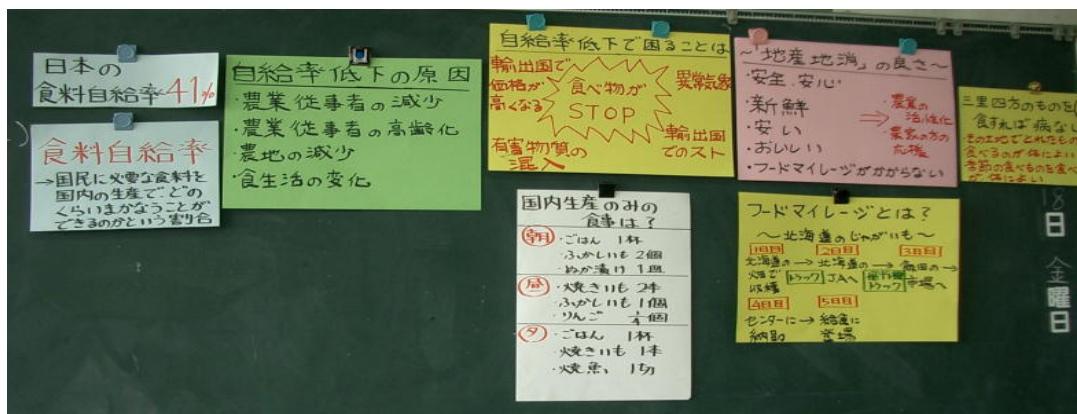 日本の
食料自給率41%
食料自給率
→国民に必要な食料を
国内の生産でどの
くらいまかなうことが
できるのかという割合
自給率低下の原因
・農業従事者の減少
・農業従事者の高齢化
・農地の減少
・食生活の変化
自給率低下で困ることは
輸出国で
価格が
高くなる
食べ物が
STOP
異常気象
有害物質の
混入
輸出国
でのスト
国内生産のみの
食事は?
朝
・ごはん 1杯
・ふかしいも 2個
・ぬか漬け 1皿
昼
・焼きいも 2本
・ふかしいも 1個
・りんご 1/4個
夕
・ごはん 1杯
・焼きいも 1本
・焼魚 1切
〜「地産地消」の良さ〜
・安全、安心
・新鮮
・安い
・おいしい
・フードマイレージがかからない
⇒
・農業の
活性化
・農家の方の
応援
フードマイレージとは?
〜北海道のじゃがいも〜
1日目 2日目 3日目
北海道の→北海道の→飯田の→
畑で トラック JAへ トラック 市場へ
収穫
4日目 5日目
センターに→給食に
納品 登場
三里四方のものを
食すれば病なし
その土地でとれたもの
食べるのが体によい
季節の食べものを食べ
が体によい
18
日
金
曜
日